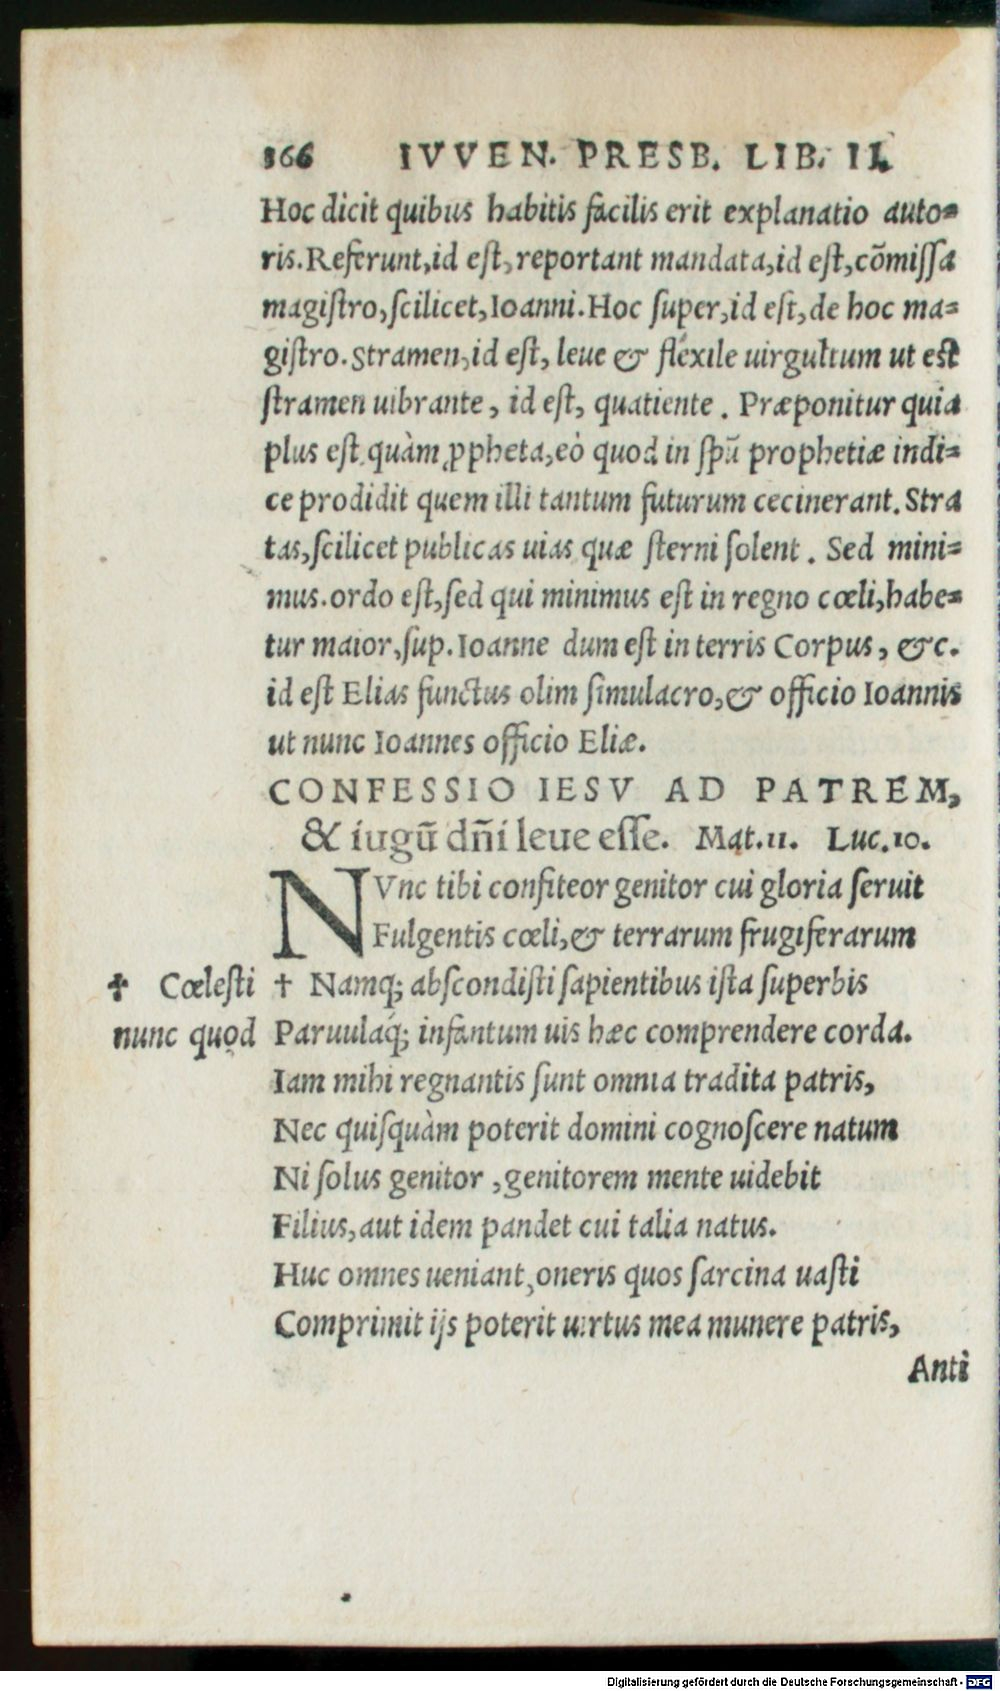 166 IVVEN. PRESB. LIB. II.
Hoc dicit quibus habitis facilis erit explanatio auto=
ris. Referunt, id est, reportant mandata, id est, cõmissa
magistro, scilicet, Ioanni. Hoc super, id est, de hoc ma=
gistro. Stramen, id est, leue & flexile uirgultum ut est
stramen uibrante, id est, quatiente. Præponitur quia
plus est quàm ꝓpheta, eò quod in spũ prophetiæ indi=
ce prodidit quem illi tantum futurum cecinerant. Stra
tas, scilicet publicas uias quæ sterni solent. Sed mini=
mus. ordo est, sed qui minimus est in regno cœli, habe=
tur maior, sup. Ioanne dum est in terris Corpus, &c.
id est Elias functus olim simulacro, & officio Ioannis
ut nunc Ioannes officio Eliæ.
CONFESSIO IESV AD PATREM,
& iugũ dñi leue esse. Mat. 11. Luc. 10.
NVnc tibi confiteor genitor cui gloria seruit
Fulgentis cœli, & terrarum frugiferarum
✝ Cœlesti † Namq; abscondisti sapientibus ista superbis
nunc quod Paruuláq; infantum uis hæc comprendere corda.
Iam mihi regnantis sunt omnia tradita patris,
Nec quisquàm poterit domini cognoscere natum
Ni solus genitor, genitorem mente uidebit
Filius, aut idem pandet cui talia natus.
Huc omnes ueniant, oneris quos sarcina uasti
Comprimit ijs poterit uirtus mea munere patris,
Anti
Digitalisierung gefördert durch die Deutsche Forschungsgemeinschaft - DFG